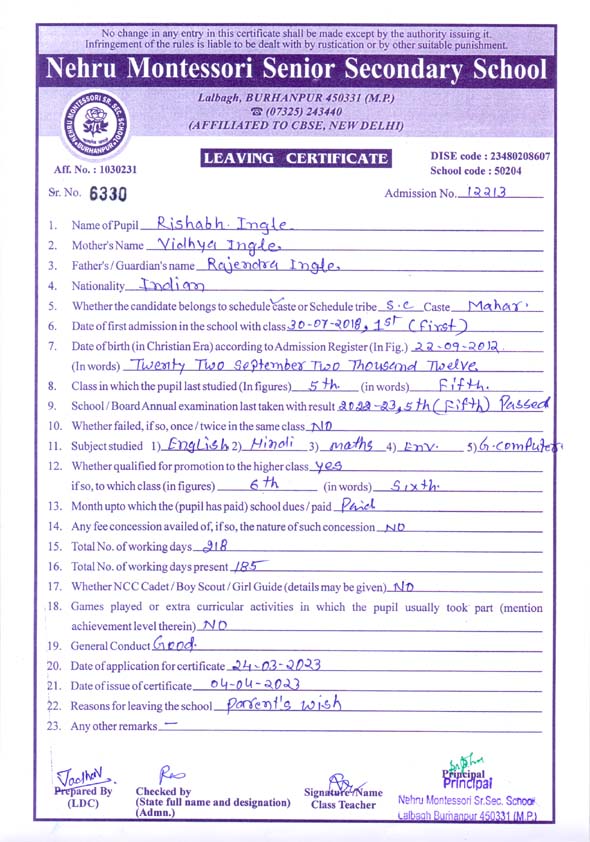 No change in any entry in this certificate shall be made except by the authority issuing it.
Infringement of the rules is liable to be dealt with by rustication or by other suitable punishment.
Nehru Montessori Senior Secondary School
Lalbagh, BURHANPUR 450331 (M.P.)
☎ (07325) 243440
(AFFILIATED TO CBSE, NEW DELHI)
NEHRU MONTESSORI SR. SEC. SCHOOL
BURHANPUR
LEAVING CERTIFICATE
DISE code : 23480208607
Aff. No. : 1030231
School code : 50204
Sr. No. 6330
Admission No. 12213
1. Name of Pupil Rishabh Ingle
2. Mother's Name Vidhya Ingle
3. Father's / Guardian's name Rajendra Ingle
4. Nationality Indian
5. Whether the candidate belongs to schedule caste or Schedule tribe S.C Caste Mahar
6. Date of first admission in the school with class 30-07-2018, 1st (first)
7. Date of birth (in Christian Era) according to Admission Register (In Fig.) 22-09-2012
(In words) Twenty Two September Two Thousand Twelve
8. Class in which the pupil last studied (In figures) 5th (in words) Fifth.
9. School / Board Annual examination last taken with result 2022-23, 5th (Fifth) Passed
10. Whether failed, if so, once / twice in the same class NO
11. Subject studied 1) English 2) Hindi 3) maths 4) Env. 5) G.computer
12. Whether qualified for promotion to the higher class yes
if so, to which class (in figures) 6th (in words) Sixth
13. Month upto which the (pupil has paid) school dues / paid Paid
14. Any fee concession availed of, if so, the nature of such concession NO
15. Total No. of working days 218
16. Total No. of working days present 185
17. Whether NCC Cadet / Boy Scout / Girl Guide (details may be given) NO
18. Games played or extra curricular activities in which the pupil usually took part (mention
achievement level therein) NO
19. General Conduct Good.
20. Date of application for certificate 24-03-2023
21. Date of issue of certificate 04-04-2023
22. Reasons for leaving the school parent's wish
23. Any other remarks —
Jadhav
Prepared By
(LDC)
Checked by
(State full name and designation)
(Admn.)
Signature/Name
Class Teacher
Principal
Principal
Nehru Montessori Sr.Sec. School
Lalbagh Burhanpur 450331 (M.P.)